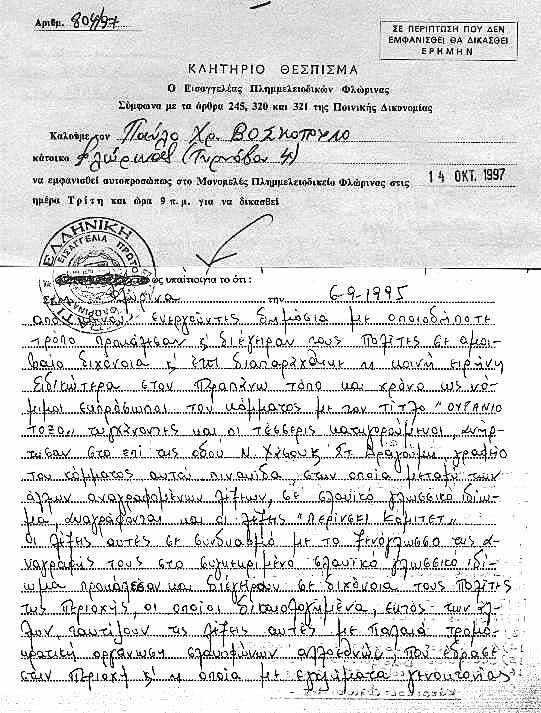 Αριθμ. 804/97
ΣΕ ΠΕΡΙΠΤΩΣΗ ΠΟΥ ΔΕΝ
ΕΜΦΑΝΙΣΘΕΙ ΘΑ ΔΙΚΑΣΘΕΙ
ΕΡΗΜΗΝ
ΚΛΗΤΗΡΙΟ ΘΕΣΠΙΣΜΑ
Ο Εισαγγελέας Πλημμελειοδικών Φλώρινας
Σύμφωνα με τα άρθρα 245, 320 και 321 της Ποινικής Δικονομίας
Καλούμε τον Παύλο Χρ. ΒΟΣΚΟΠΟΥΛΟ
κάτοικο Φλώρινας (Τυρνόβου 4)
να εμφανισθεί αυτοπροσώπως στο Μονομελές Πλημμελειοδικείο Φλώρινας στις 14 ΟΚΤ. 1997
ημέρα Τρίτη και ώρα 9 π.μ. για να δικασθεί
ΕΛΛΗΝΙΚΗ
ΕΙΣΑΓΓΕΛΙΑ ΠΡΩΤΟ
ως υπαίτιο για το ότι :
Φλώρινα την 6-9-1995
από κοινού ενεργούντες δημόσια με οποιοδήποτε
τρόπο προκάλεσαν κ' διέγειραν τους πολίτες σε αμοι-
βαίο διχόνοια κ' έτσι διαταράχθηκε η κοινή ειρήνη
Ειδικώτερα στον παραπάνω τόπο και χρόνο ως νό-
μιμοι εκπρόσωποι του κόμματος με τον τίτλο "ΟΥΡΑΝΙΟ
ΤΟΞΟ" τυγχάνοντες και οι τέσσερις κατηγορούμενοι, ανήρ-
τησαν στο επί της οδού Στ. Δραγούμη γραφείο
του κόμματος αυτού πινακίδα, στην οποία μεταξύ των
άλλων αναγραφομένων λέξεων, σε σλαυικό γλωσσικό ιδίω-
μα, αναγράφονται και οι λέξεις "ΛΕΡΙΝΣΚΙ ΚΟΜΙΤΕΤ"
οι λέξεις αυτές σε συνδυασμό με το ξενόγλωσσο της α-
ναγραφής τους στο συγκεκριμένο σλαυικό γλωσσικό ιδί-
ωμα προκάλεσαν και διέγειραν σε διχόνοια τους πολίτες
της περιοχής, οι οποίοι δικαιολογημένα, εκτός των άλ-
λων, ταυτίζουν τις λέξεις αυτές με παλαιά τρομο-
κρατική οργάνωση σλαυοφώνων αλλοεθνών, που έδρασε
στην περιοχή κ' η οποία με εγκλήματα γενοκτονίας